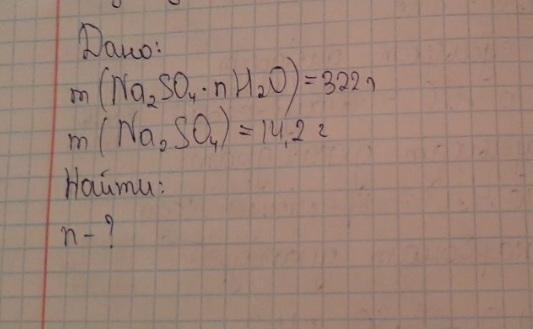 Дано:
m(Na₂SO₄·nH₂O)=322г
m(Na₂SO₄)=14,2 г
Найти:
n-?